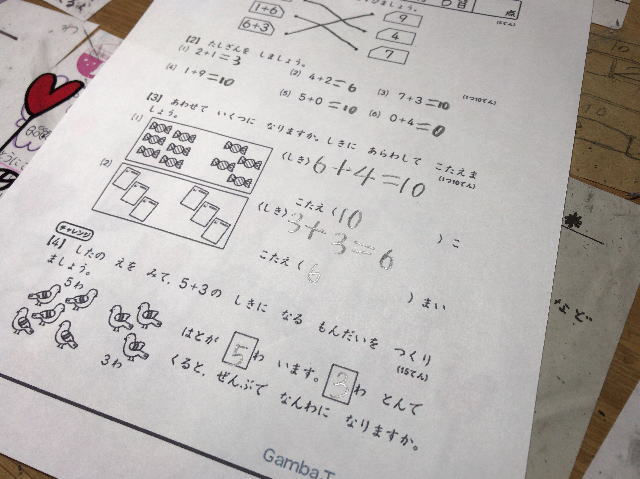 1+6
6+3
9
4
7
点
【2】 たしざんを しましょう。
(1) 2+1=3
(2) 4+2=6
(3) 7+3=10
(1つ10てん)
(4) 1+9=10
(5) 5+0=10
(6) 0+4=0
【3】 あわせて いくつに なりますか。しきに あらわして こたえま
しょう。
(1つ10てん)
(1)
(しき) 6+4=10
こたえ (10 ) こ
(2)
(しき) 3+3=6
こたえ (6 ) まい
チャレンジ
【4】 したの えを みて、5+3の しきに なる もんだいを つくり
ましょう。
(15てん)
5わ
3わ
はとが 5わ います。3わ とんで
くると、ぜんぶで なんわに なりますか。
Gamba.T